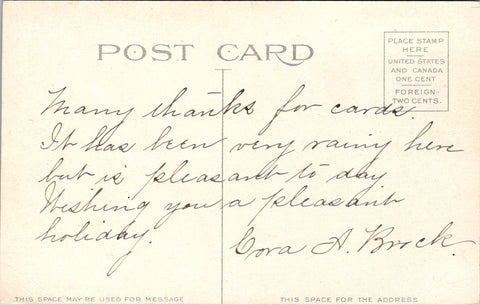 POST CARD
PLACE STAMP
HERE
UNITED STATES
AND CANADA
ONE CENT
FOREIGN-
TWO CENTS.
Many thanks for cards.
It has been very rainy here
but is pleasant to day
Wishing you a pleasant
holiday.
Cora A. Brock.
THIS SPACE MAY BE USED FOR MESSAGE
THIS SPACE FOR THE ADDRESS